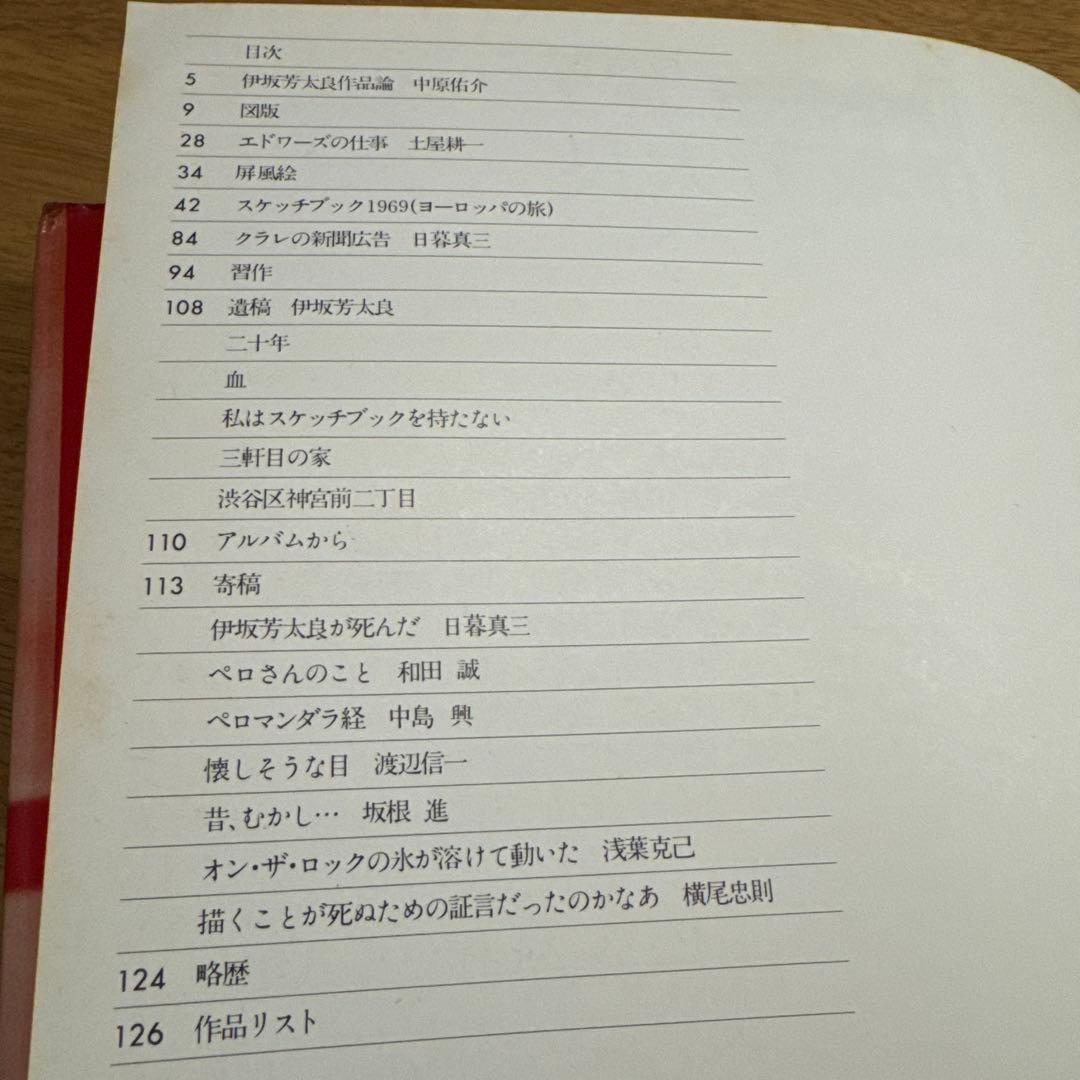 目次
5 伊坂芳太良作品論 中原佑介
9 図版
28 エドワーズの仕事 土屋耕一
34 屏風絵
42 スケッチブック1969(ヨーロッパの旅)
84 クラレの新聞広告 日暮真三
94 習作
108 遺稿 伊坂芳太良
二十年
血
私はスケッチブックを持たない
三軒目の家
渋谷区神宮前二丁目
110 アルバムから
113 寄稿
伊坂芳太良が死んだ 日暮真三
ペロさんのこと 和田 誠
ペロマンダラ経 中島 興
懐しそうな目 渡辺信一
昔、むかし… 坂根 進
オン・ザ・ロックの氷が溶けて動いた 浅葉克己
描くことが死ぬための証言だったのかなあ 横尾忠則
124 略歴
126 作品リスト